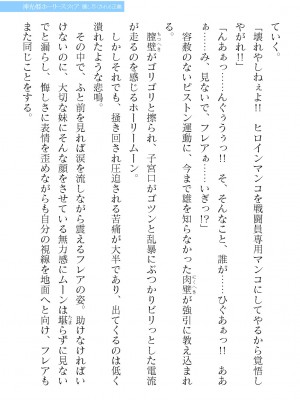 ていく。
「壊れやしねぇよ!! ヒロインマンコを戦闘員専用マンコにしてやるから覚悟し
やがれ!!」
「んあぁっ……んぐぅうぅっ!! そ、そんなこと、誰が……ひぐあぁっ!! ああ
ぁ……み、見ないで、フレアぁ……いぎっ!?」
容赦のないピストン運動に、今まで雄を知らなかった肉壁が強引に教え込まれ
る。
膣壁がゴリゴリと擦られ、子宮口がゴツンと乱暴にぶつかりビリっとした電流
が走るのを感じるホーリームーン。
しかしそれでも、掻き回され圧迫される苦痛が大半であり、出てくるのは低く
潰れたような悲鳴。
その中で、ふと前を見れば涙を流しながら震えるフレアの姿、助けなければい
けないのに、大切な妹にそんな顔をさせている無力感にムーンは堪らずに見ない
でと漏らし、悔しさに表情を歪めながらも自分の視線を地面へと向け、フレアも
また同じことをする。